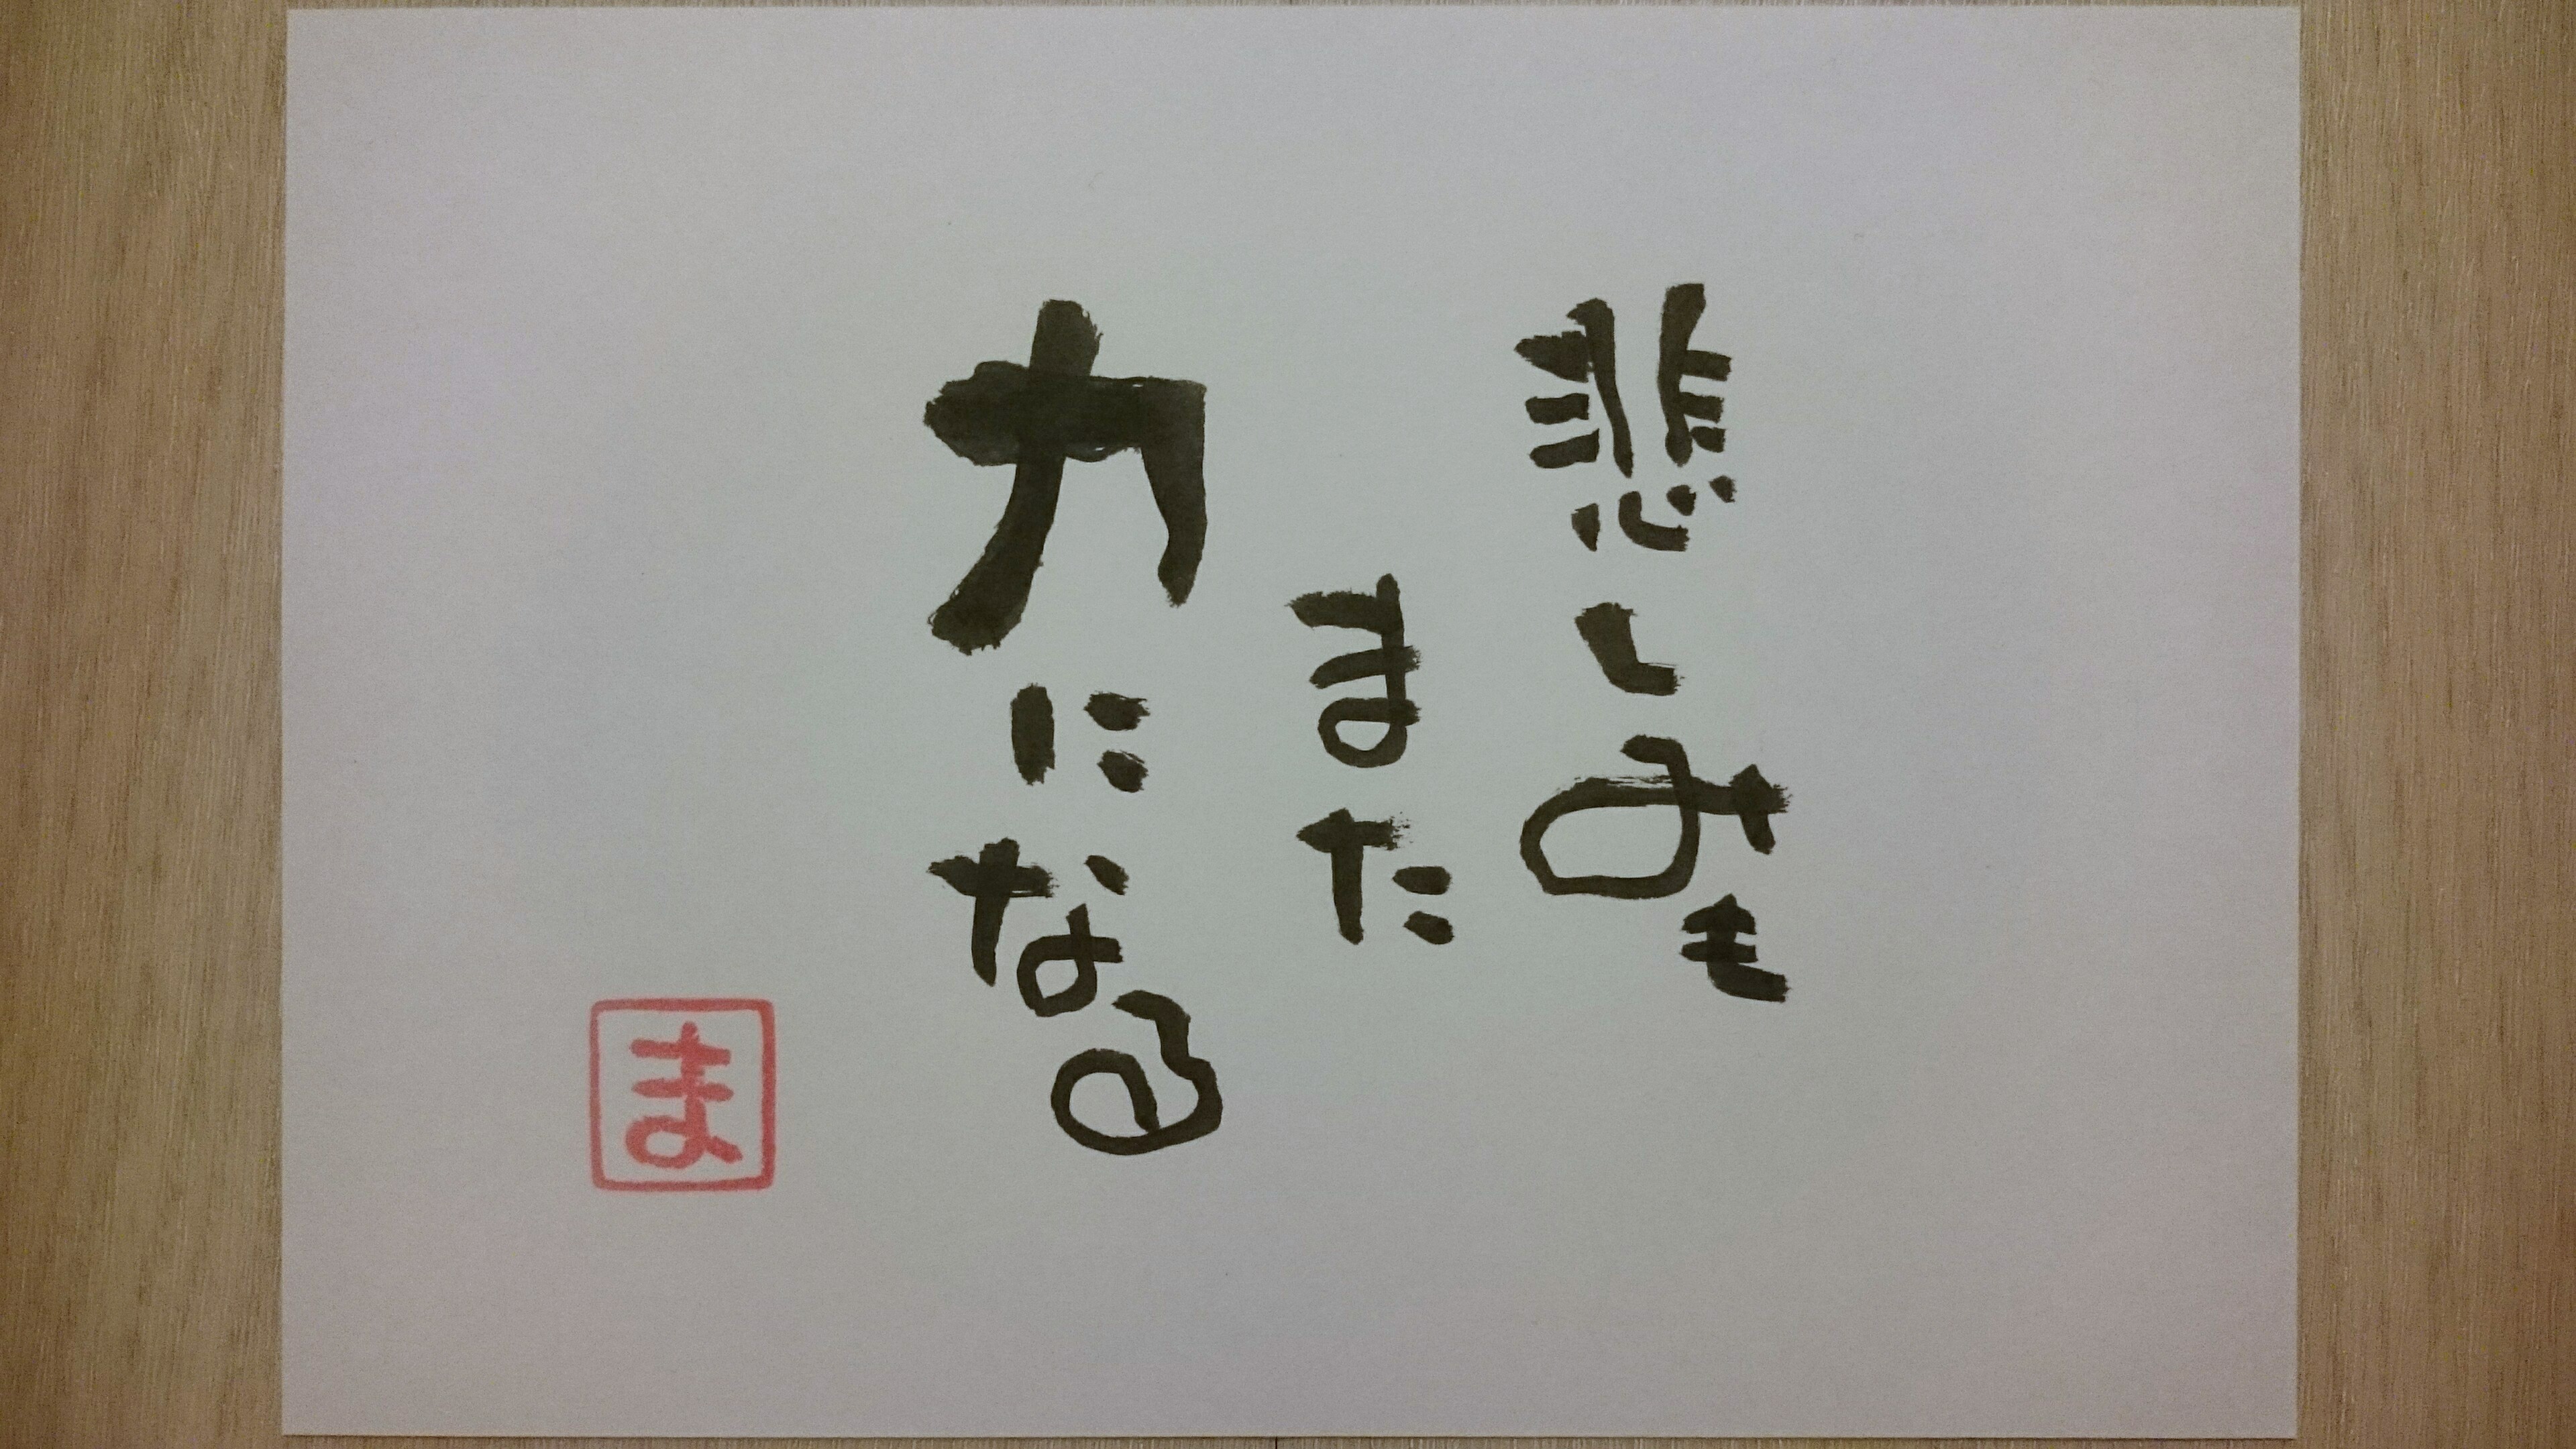 悲しみも
また
力になる
ま